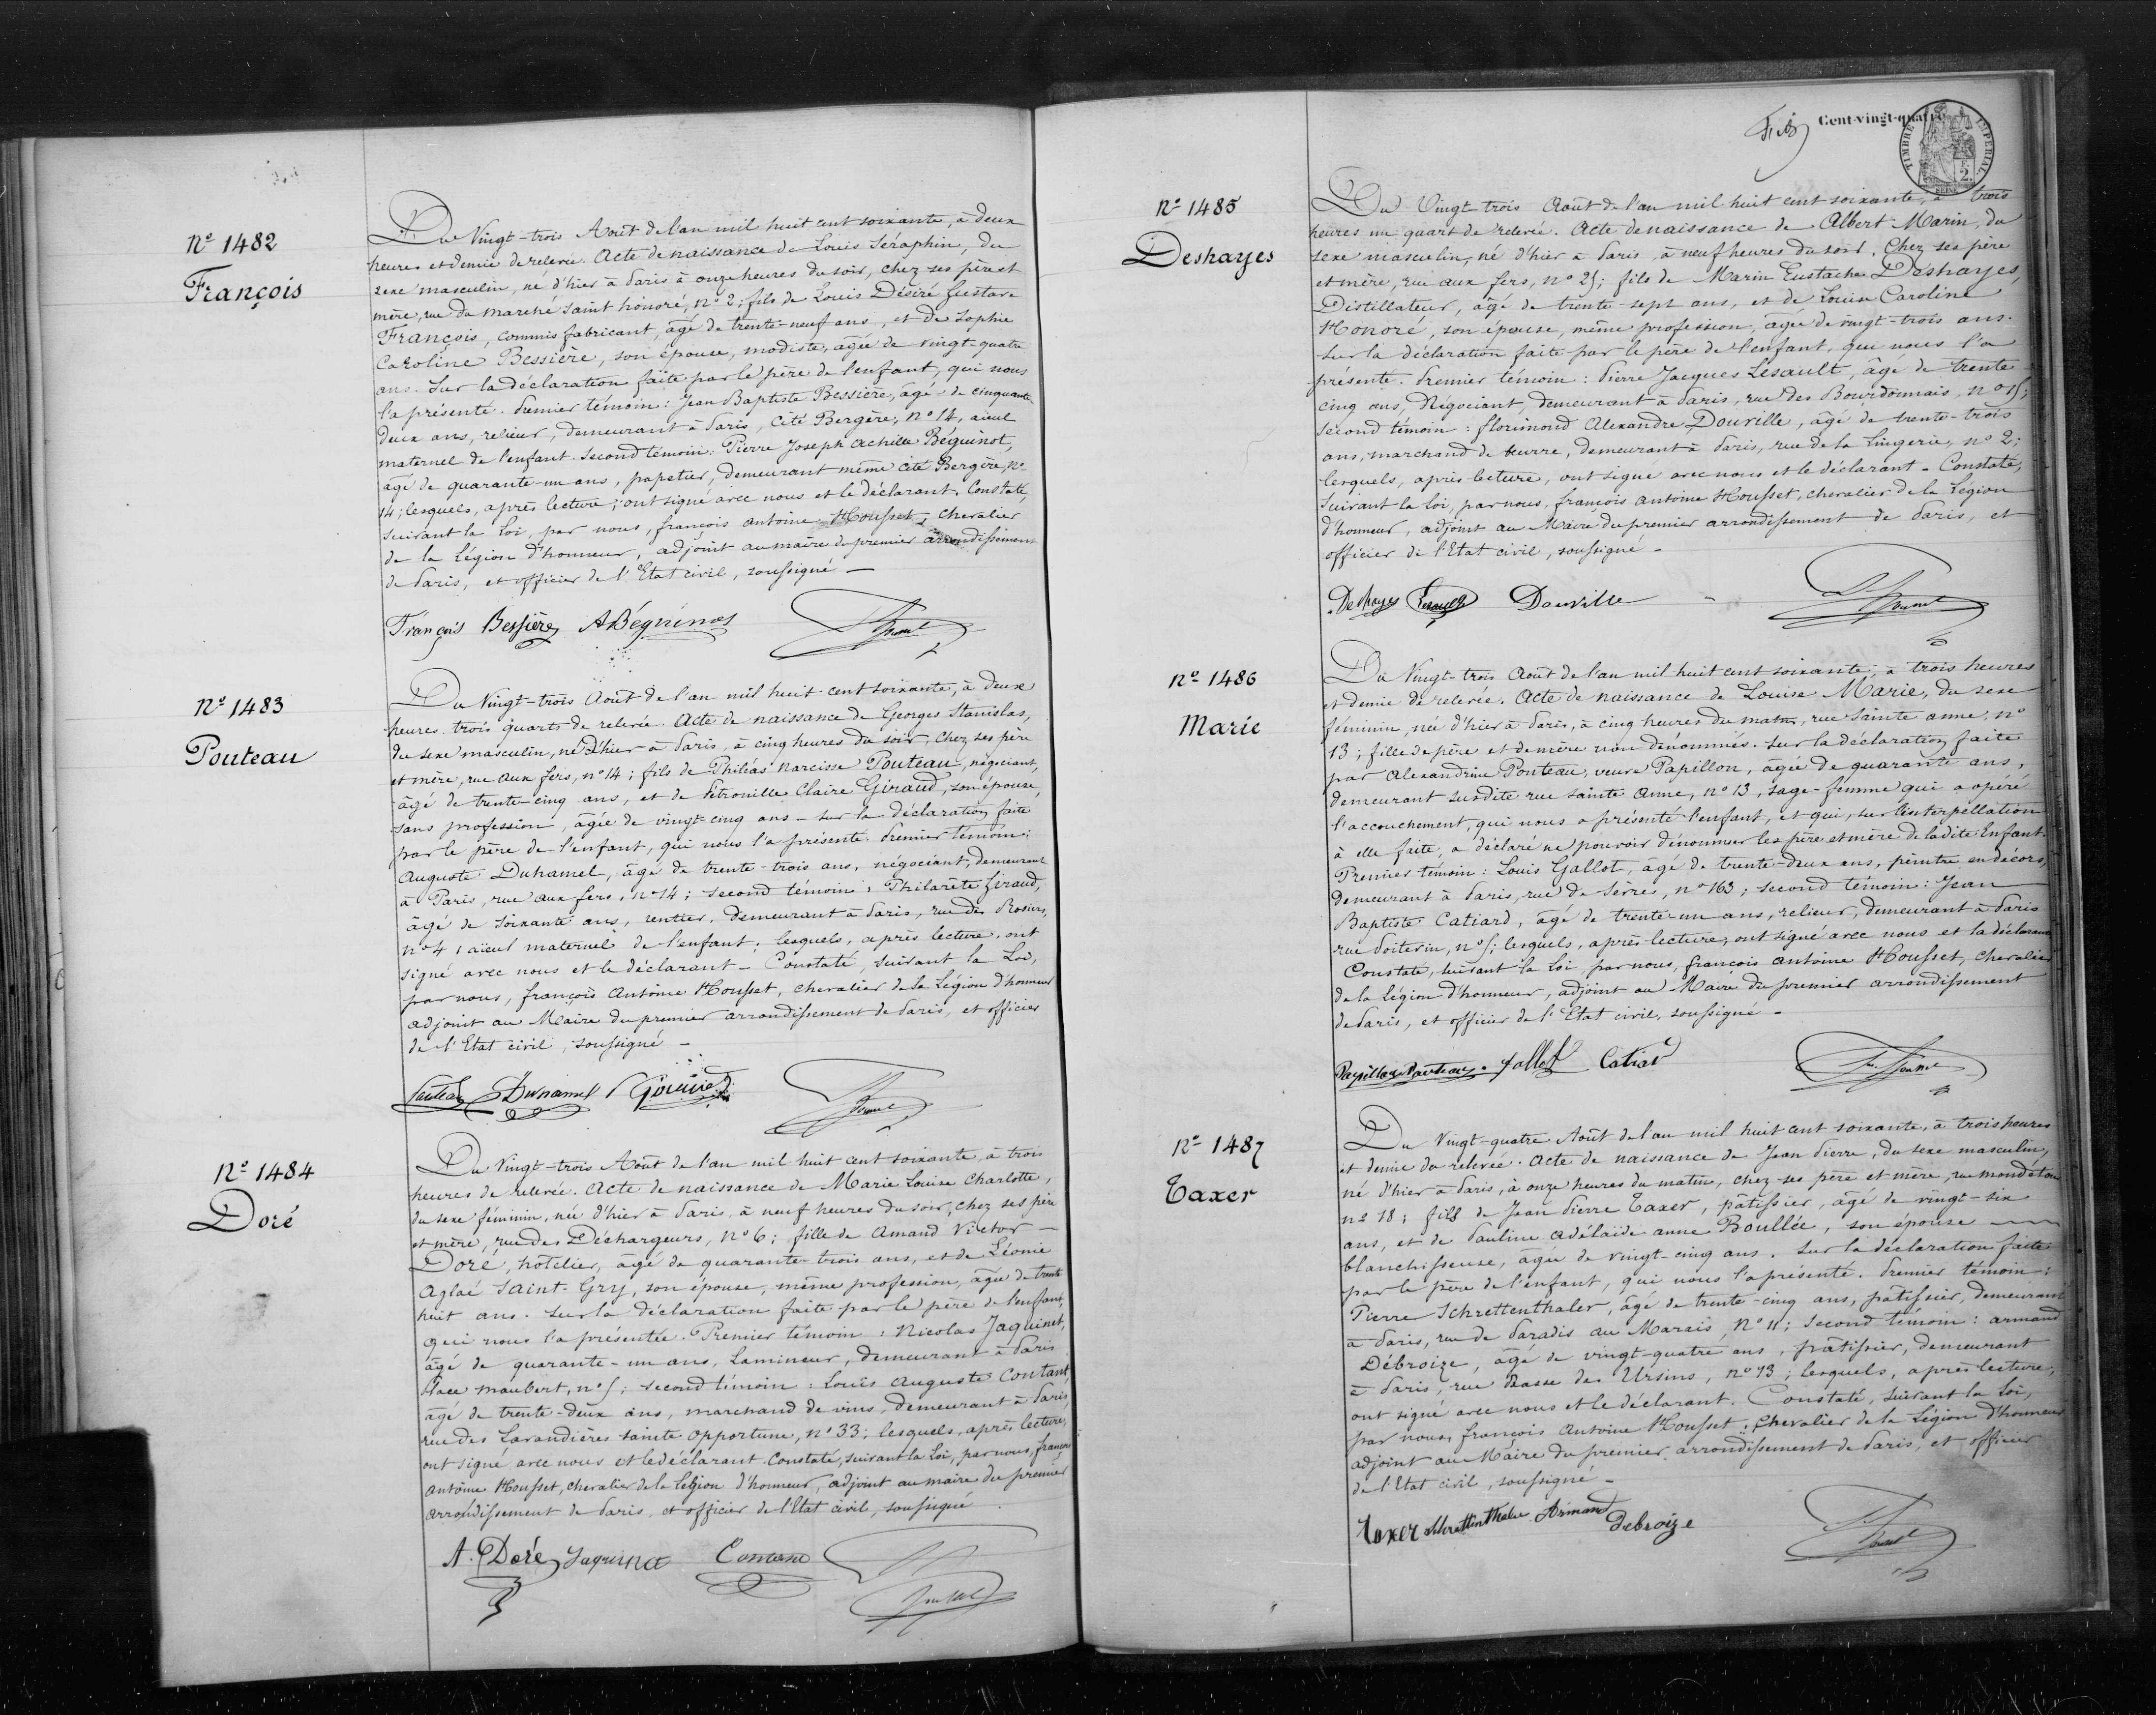 Nº 1482
François
Du Vingt-trois Août de l'an mil huit cent soixante, à deux
heures et demie de relevée. Acte de naissance de Louis Séraphin, du
sexe masculin, né d'hier à Paris à onze heures du soir, chez ses père et
mère, rue du marché Saint honoré, nº 2; fils de Louis Désiré Gustave
François, commis fabricant, âgé de trente-neuf ans, et de Sophie
Caroline Bessière, son épouse, modiste, âgée de vingt-quatre
ans. Sur la déclaration faite par le père de l'enfant, qui nous
l'a présenté. Premier témoin: Jean Baptiste Bessière, âgé de cinquante
deux ans, relieur, demeurant à Paris, Cité Bergère, nº 14, aïeul
maternel de l'enfant. Second témoin: Pierre Joseph Achille Béguinot,
âgé de quarante-un ans, papetier, demeurant même cité Bergère, nº
14; lesquels, après lecture, ont signé avec nous et le déclarant. Constaté,
suivant la Loi, par nous, françois antoine Housset, Chevalier
de la Légion d'honneur, adjoint au maire du premier arrondissement
de Paris, et officier de l'Etat civil, soussigné —
François Bessière A Béguinot
Nº 1483
Pouteau
Du Vingt-trois Août de l'an mil huit cent soixante, à deux
heures trois quarts de relevée. Acte de naissance de Georges Stanislas,
du sexe masculin, né d'hier à Paris, à cinq heures du soir, chez ses père
et mère, rue aux fers, nº 14; fils de Philéas Narcisse Pouteau, négociant,
âgé de trente-cinq ans, et de Pétronille Claire Giraud, son épouse,
sans profession, âgée de vingt-cinq ans — sur la déclaration faite
par le père de l'enfant, qui nous l'a présenté. Premier témoin:
Auguste Duhamel, âgé de trente-trois ans, négociant, demeurant
à Paris, rue aux fers, nº 14; second témoin: Philarète Giraud,
âgé de soixante ans, rentier, demeurant à Paris, rue des Rosiers,
nº 4, aïeul maternel de l'enfant; lesquels, après lecture, ont
signé avec nous et le déclarant — Constaté, suivant la Loi,
par nous, françois Antoine Housset, chevalier de la Légion d'honneur
adjoint au Maire du premier arrondissement de Paris, et officier
de l'Etat civil, soussigné —
Pouteau Duhamel Giraud
Nº 1484
Doré
Du Vingt-trois Août de l'an mil huit cent soixante, à trois
heures de relevée. Acte de naissance de Marie Louise Charlotte,
du sexe féminin, née d'hier à Paris à neuf heures du soir, chez ses père
et mère, rue des Déchargeurs, nº 6; fille de Amand Victor —
Doré, hôtelier, âgé de quarante-trois ans, et de Léonie
Aglaé Saint-Gry, son épouse, même profession, âgée de trente
huit ans. Sur la déclaration faite par le père de l'enfant,
qui nous l'a présentée. Premier témoin: Nicolas Jaquinet,
âgé de quarante-un ans, Lamineur, demeurant à Paris
Place Maubert, nº 5; second témoin: Louis Auguste Contant
âgé de trente-deux ans, marchand de vins, demeurant à Paris,
rue des Lavandières Sainte Opportune, nº 33; lesquels, après lecture,
ont signé avec nous et le déclarant. Constaté, suivant la Loi, par nous, françois
antoine Housset, chevalier de la Légion d'honneur, adjoint au maire du premier
arrondissement de Paris, et officier de l'Etat civil, soussigné
A. Doré Jaquinet Contant
Cent-vingt-quatre
TIMBRE IMPERIAL
2.
SEINE
Nº 1485
Deshayes
Du Vingt-trois Août de l'an mil huit cent soixante, à trois
heures un quart de relevée. Acte de naissance de Albert Marin, du
sexe masculin, né d'hier à Paris, à neuf heures du soir, Chez ses père
et mère, rue aux fers, nº 25; fils de Marin Eustache Deshayes,
Distillateur, âgé de trente-sept ans, et de Louise Caroline
Honoré, son épouse, même profession, âgée de vingt-trois ans.
Sur la déclaration faite par le père de l'enfant, qui nous l'a
présenté. Premier témoin: Pierre Jacques Lesault, âgé de trente-
cinq ans, Négociant, demeurant à Paris, rue des Bourdonnais, nº 15;
Second témoin: florimond Alexandre Douville, âgé de trente-trois
ans, marchand de beurre, demeurant à Paris, rue de la Lingerie, nº 2;
lesquels, après lecture, ont signé avec nous et le déclarant - Constaté,
Suivant la Loi, par nous, françois antoine Housset, chevalier de la Légion
d'honneur, adjoint au Maire du premier arrondissement de Paris, et
officier de l'Etat civil, soussigné -
Deshayes Lesault Douville
Nº 1486
Marie
Du Vingt-trois Août de l'an mil huit cent soixante, à trois heures
et demie de relevée. Acte de naissance de Louise Marie, du sexe
féminin, née d'hier à Paris, à cinq heures du matin, rue Sainte anne, nº
13; fille de père et de mère non dénommés. Sur la déclaration faite
par Alexandrine Ponteau, veuve Papillon, âgée de quarante ans,
demeurant susdite rue Sainte Anne, nº 13, sage-femme qui a opéré
l'accouchement, qui nous a présenté l'enfant, et qui, sur l'interpellation
à elle faite, a déclaré ne pouvoir dénommer les père et mère de ladite Enfant.
Premier témoin: Louis Gallot, âgé de trente-deux ans, peintre en décors,
demeurant à Paris, rue de Sèvres, nº 163; second témoin: Jean
Baptiste Catiard, âgé de trente-un ans, relieur, demeurant à Paris
rue Poitevin, nº 5; lesquels, après lecture, ont signé avec nous et la déclarante
Constaté, suivant la Loi, par nous, françois antoine Housset, chevalier
de la Légion d'honneur, adjoint au Maire du premier arrondissement
de Paris, et officier de l'Etat civil, soussigné -
Papillon Ponteau. Gallot Catiard
Nº 1487
Taxer
Du Vingt-quatre Août de l'an mil huit cent soixante, à trois heures
et demie de relevée. Acte de naissance de Jean Pierre, du sexe masculin,
né d'hier à Paris, à onze heures du matin, chez ses père et mère, rue mondetour
nº 18; fils de Jean Pierre Taxer, pâtissier, âgé de vingt-six
ans, et de Pauline adélaïde anne Boullée, son épouse
blanchisseuse, âgée de vingt-cinq ans. Sur la déclaration faite
par le père de l'enfant, qui nous l'a présenté. Premier témoin:
Pierre Schrettenthaler, âgé de trente-cinq ans, pâtissier, demeurant
à Paris, rue de Paradis au Marais, Nº 11; second témoin: armand
Débroize, âgé de vingt-quatre ans, pâtissier, demeurant
à Paris, rue Basse des Ursins, nº 13; lesquels, après lecture,
ont signé avec nous et le déclarant. Constaté, suivant la Loi,
par nous, françois Antoine Housset, Chevalier de la Légion d'honneur
adjoint au Maire du premier arrondissement de Paris, et officier
de l'Etat civil, soussigné -
Taxer Schrettenthaler Armand
Debroize